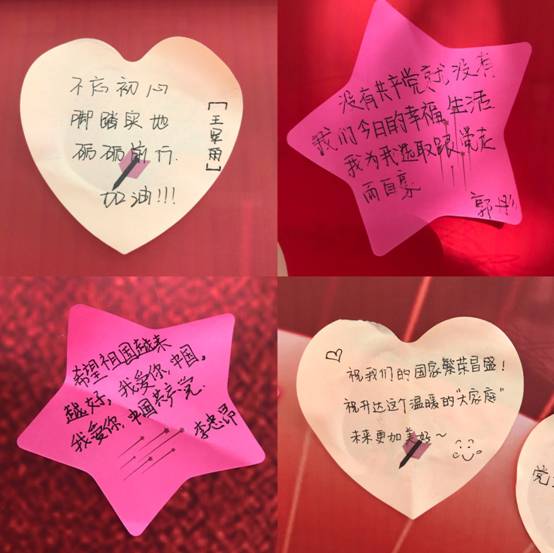 不忘初心
脚踏实地
砺砺前行.
加油!!!
[王军雨]
没有共产党就没有
我们今日的幸福生活
我为我选取跟党走
而自豪
郭彤
希望祖国越来
越好，我爱你，中国，
我爱你，中国共产党.
李忠昂
祝我们的国家繁荣昌盛！
祝升达这个温暖的“大家庭”
未来更加美好～
党